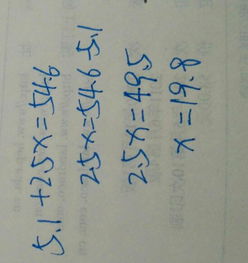 5.1+2.5x=54.6
2.5x=54.6-5.1
2.5x=49.5
x=19.8